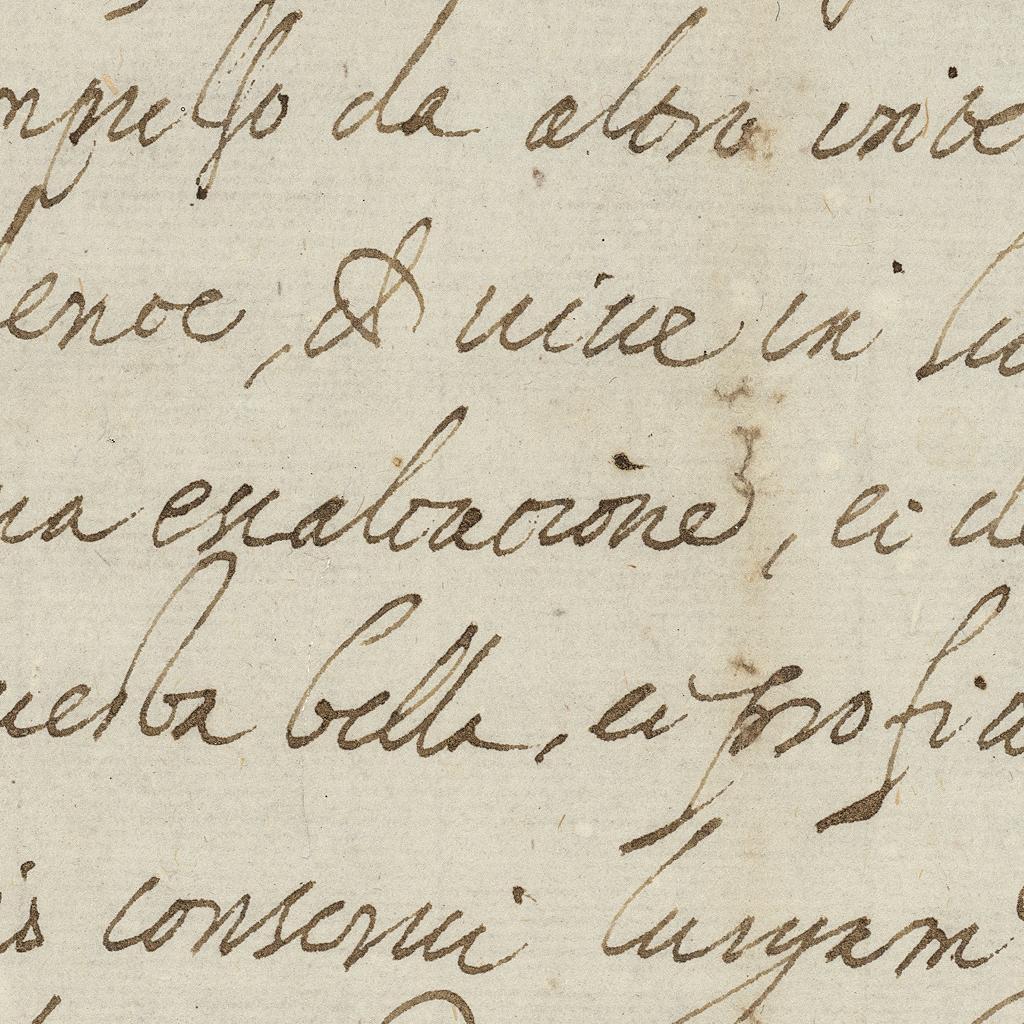 mpulso da altro inte
tenoe, & uiue in lu
ua esaltatione, et de
uesta bella, et profit
is conserui lungam